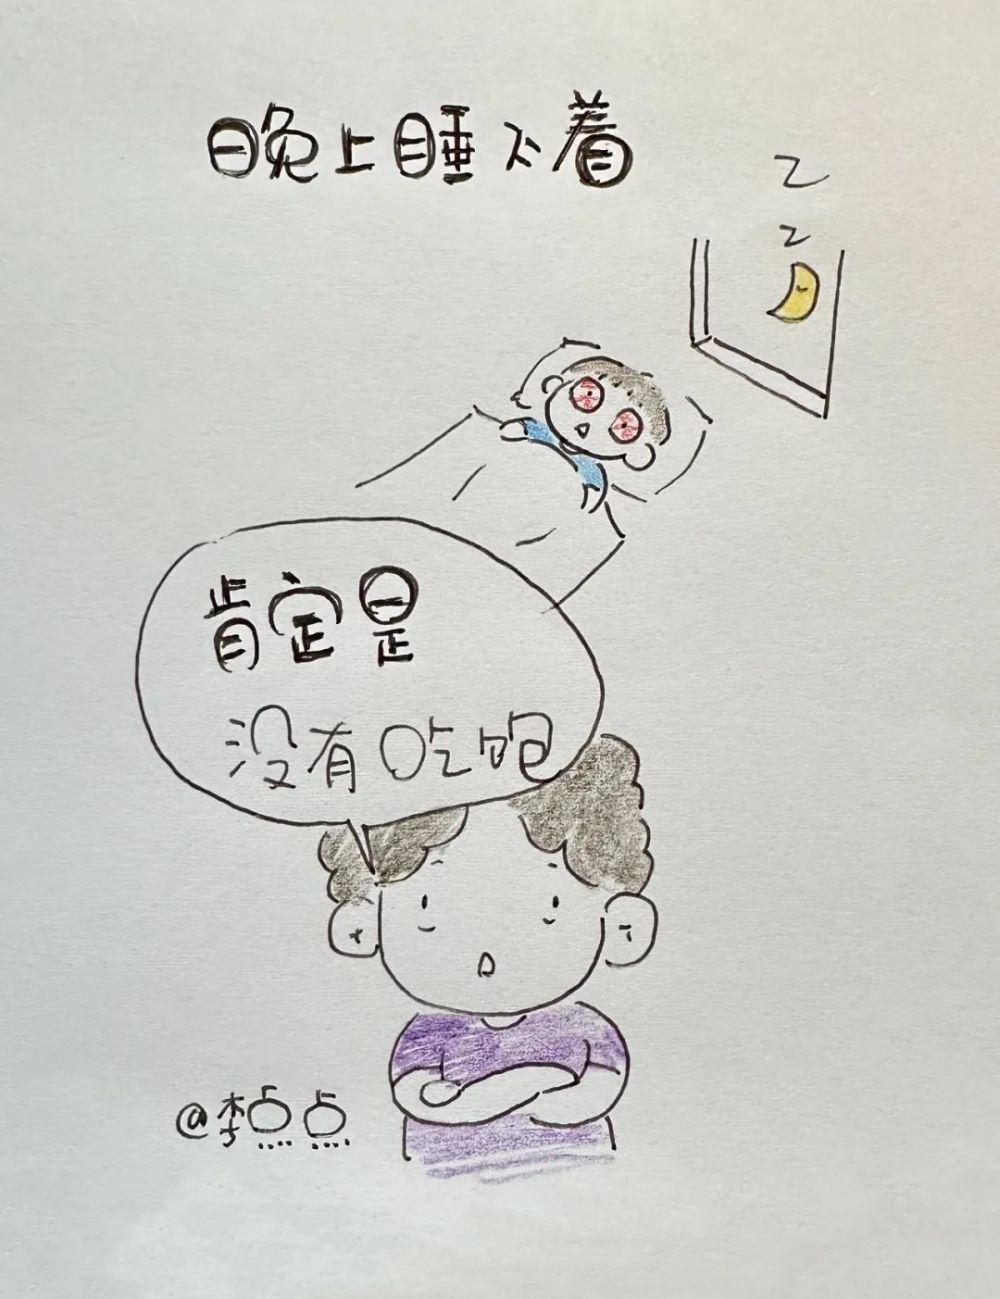 晚上睡不着
z
z
肯定是
没有吃饱
@李点点